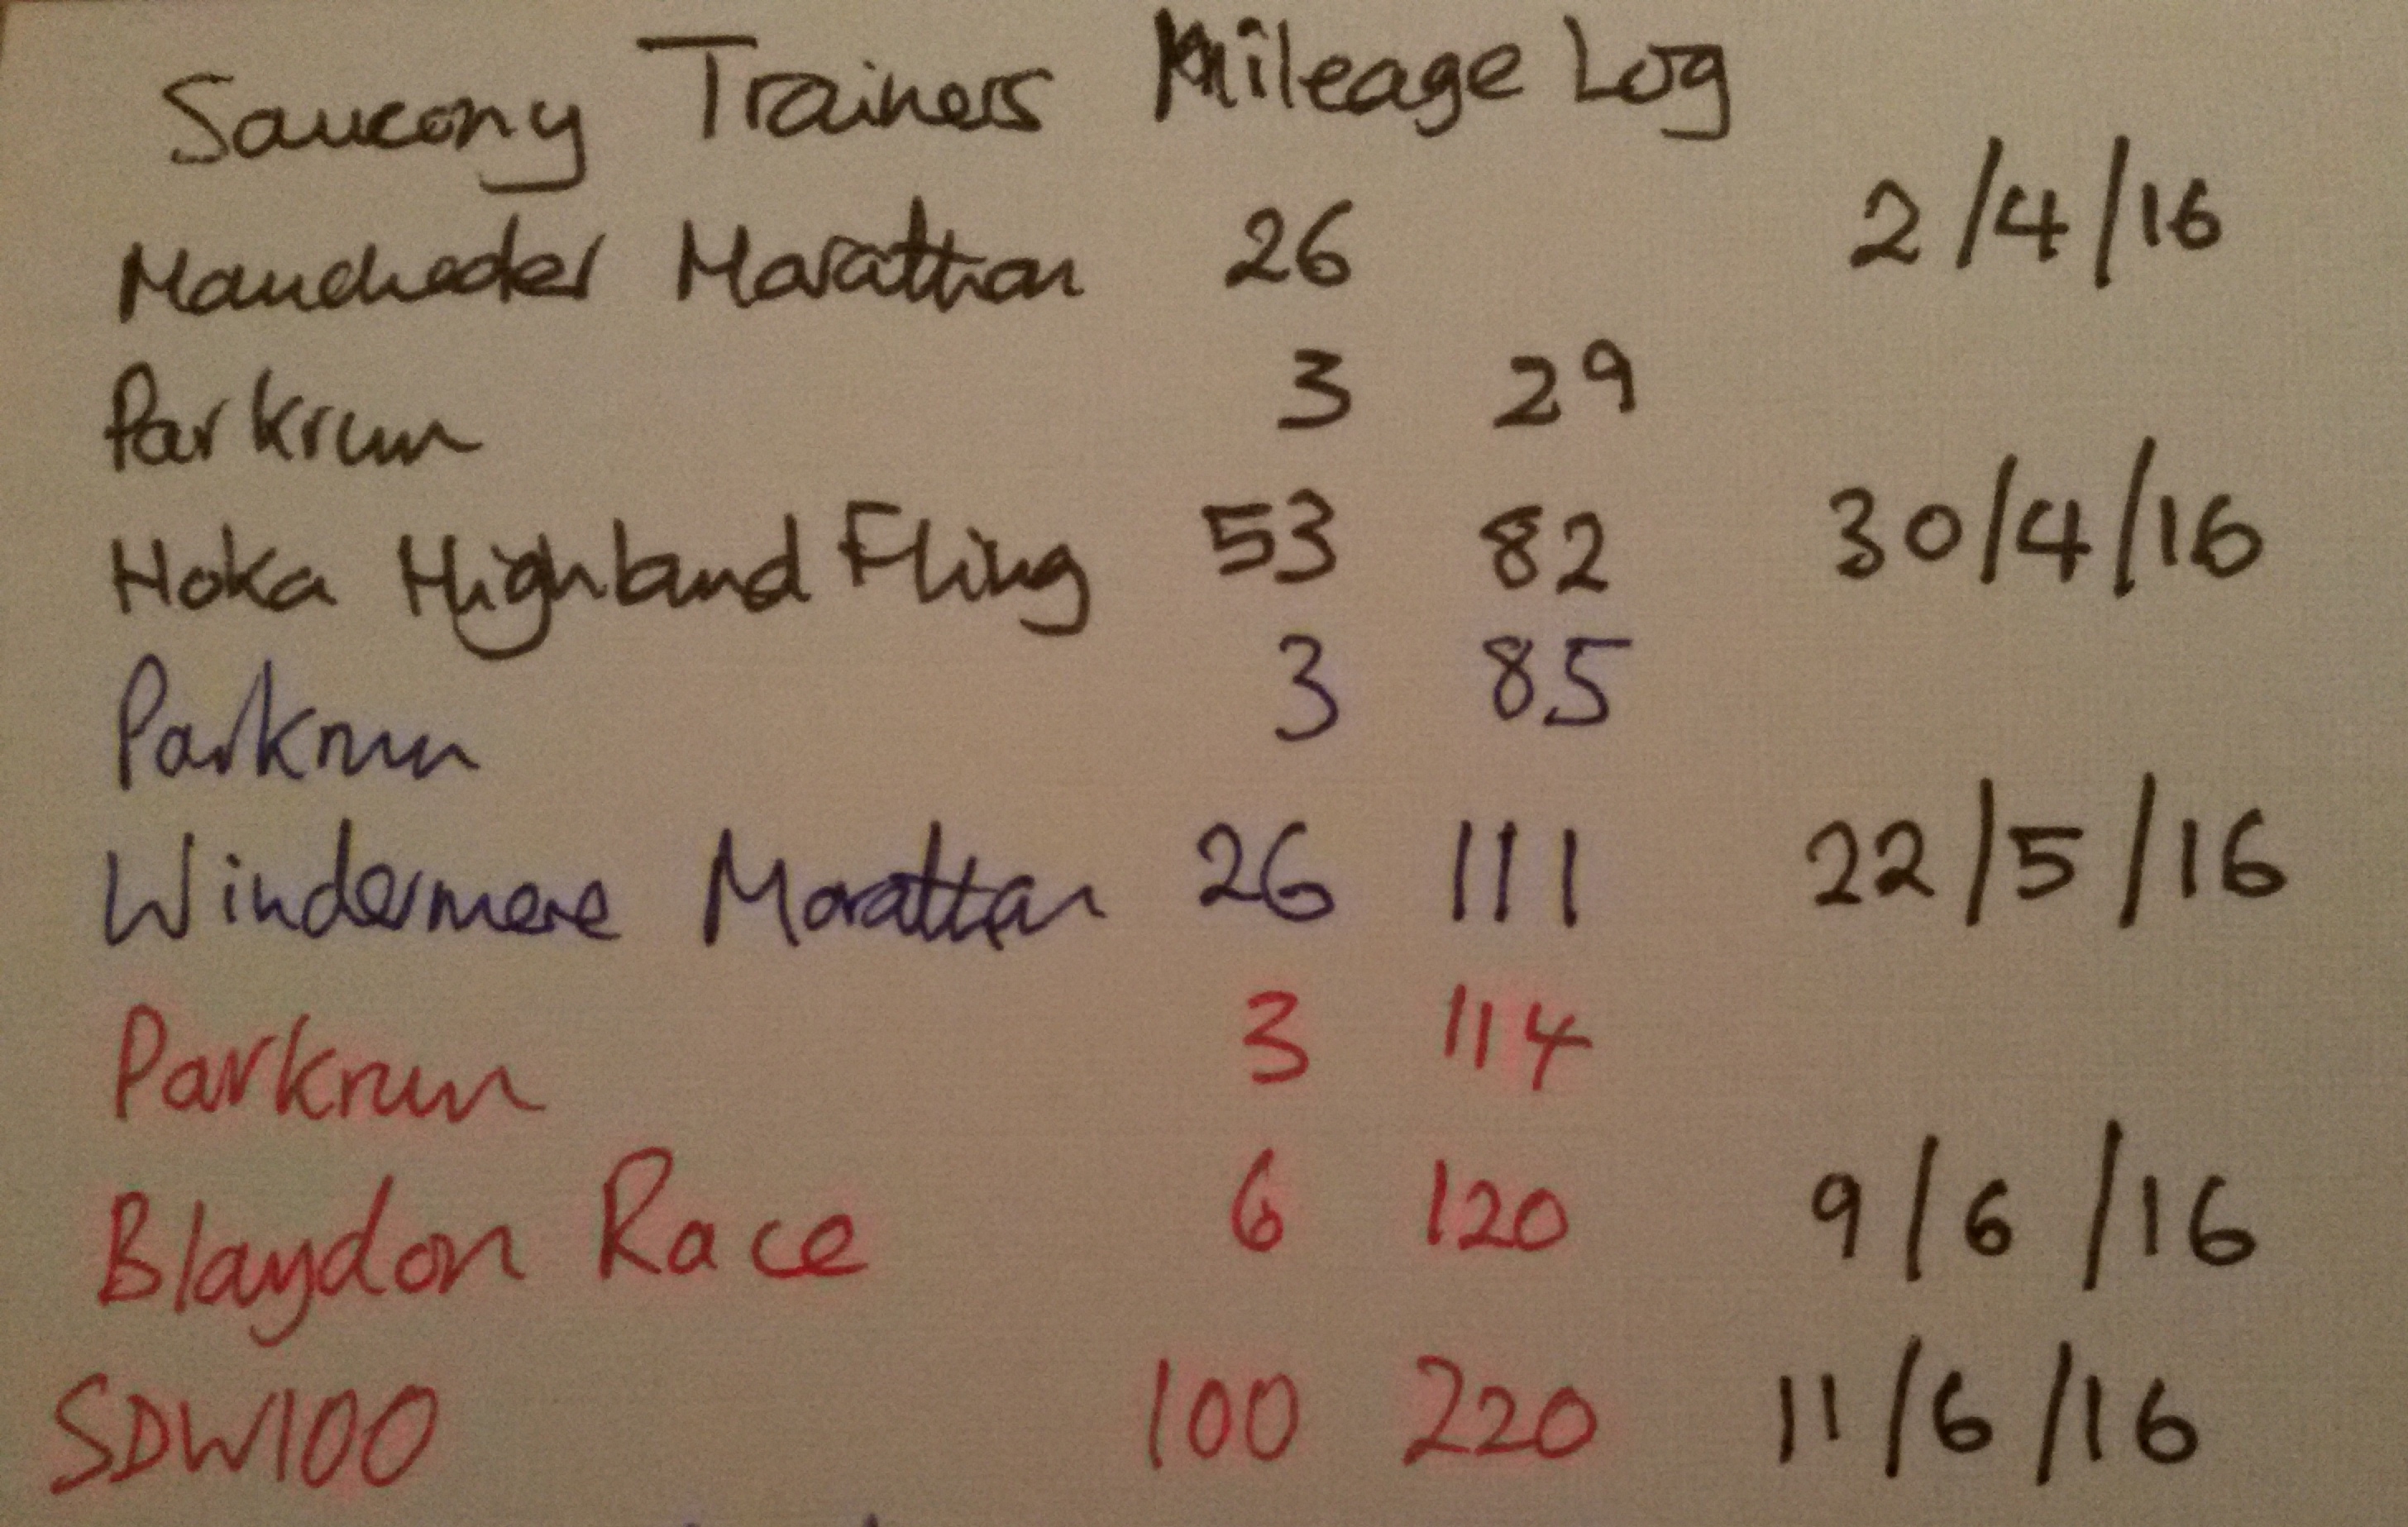 Saucony Trainers Mileage Log
Manchester Marathon 26 2/4/16
Parkrun 3 29
Hoka Highland Fling 53 82 30/4/16
Parkrun 3 85
Windermere Marathon 26 111 22/5/16
Parkrun 3 114
Blaydon Race 6 120 9/6/16
SDW100 100 220 11/6/16